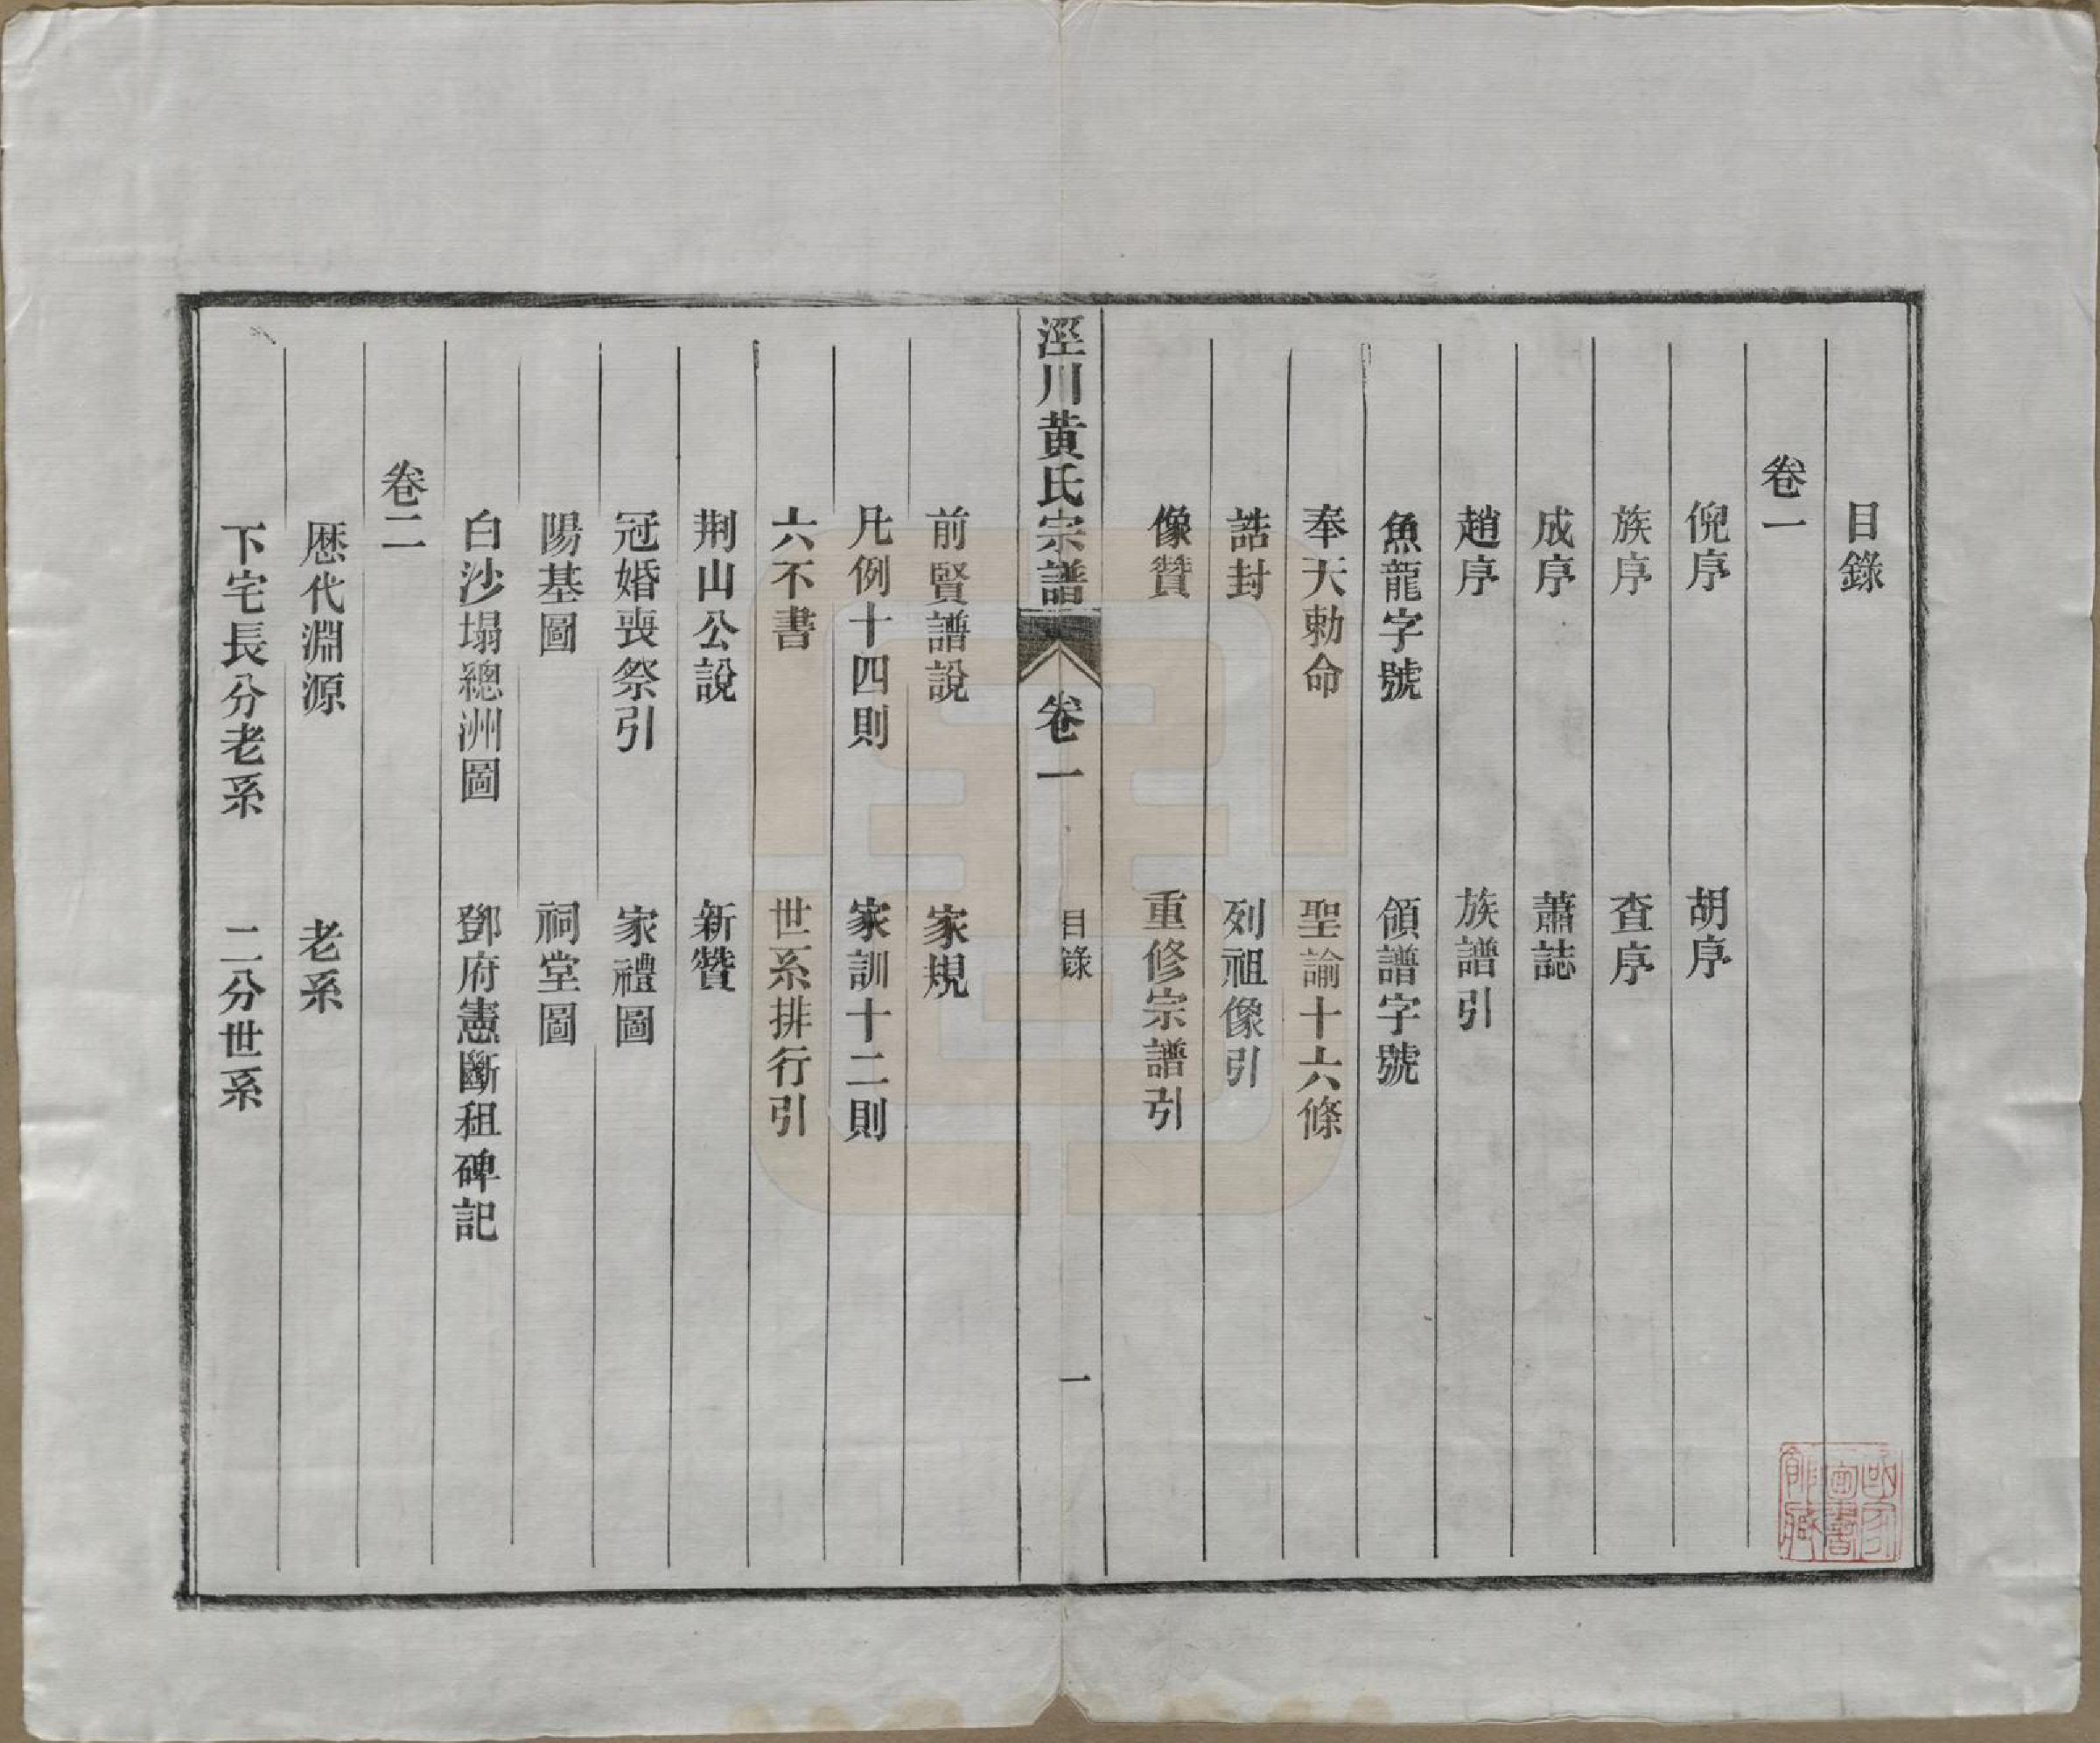 目錄
卷一
倪序　胡序
族序　查序
成序　蕭誌
趙序　族譜引
魚龍字號　領譜字號
奉天勅命　聖諭十六條
誥封　列祖像引
像贊　重修宗譜引
涇川黃氏宗譜　卷一　目錄　一
前賢譜說　家規
凡例十四則　家訓十二則
六不書　世系排行引
荆山公說　新贊
冠婚喪祭引　家禮圖
陽基圖　祠堂圖
白沙塌總洲圖　鄧府憲斷租碑記
卷二
歷代淵源　老系
下宅長分老系　二分世系